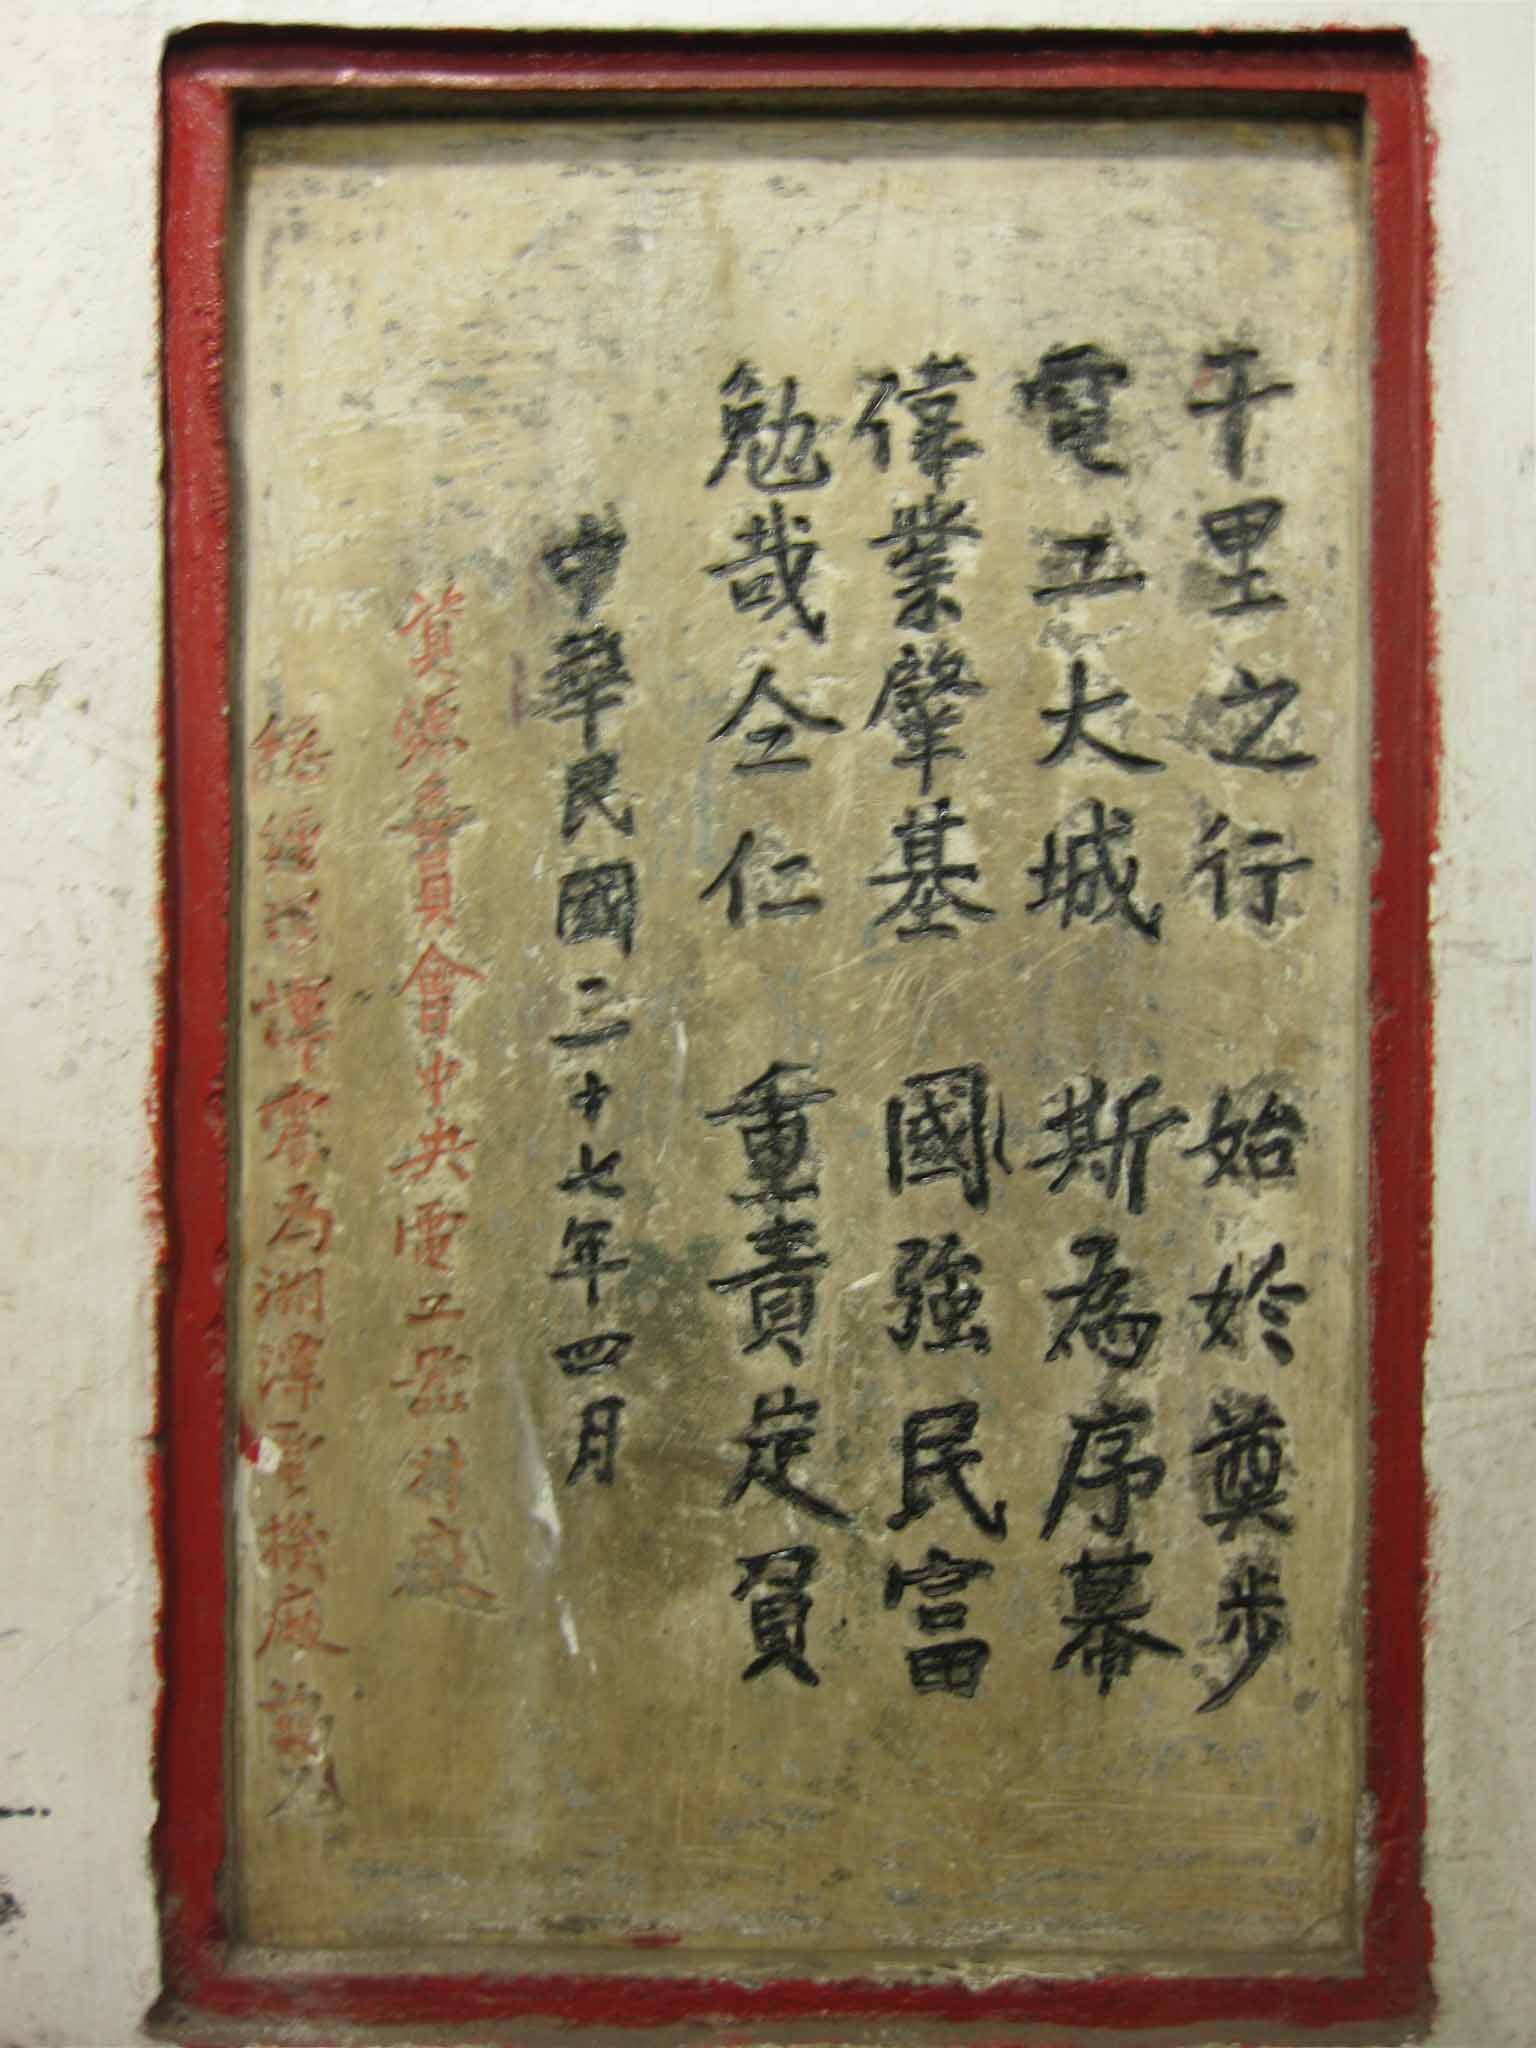 千里之行 始於奠步
電工大城 斯為序幕
偉業肇基 國強民富
勉哉仝仁 重責是負
中華民國三十七年四月
資源委員會中央電工器材廠
總經理惲震為湘潭電機廠奠